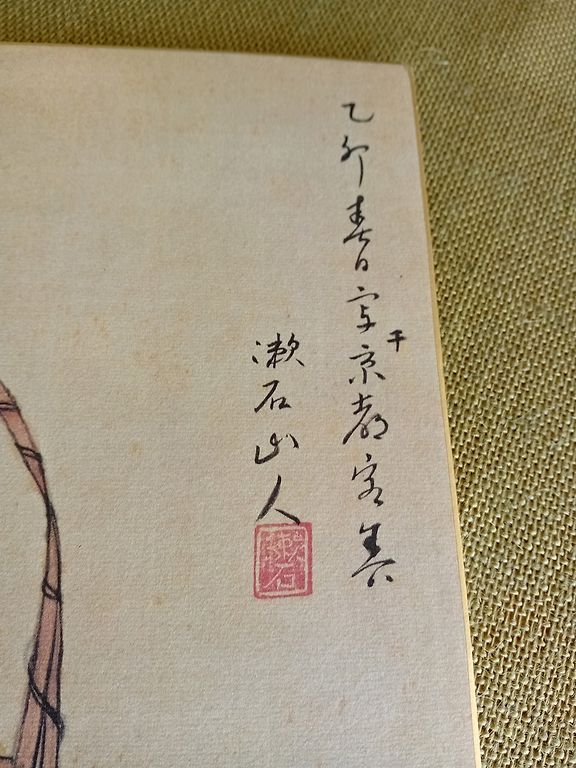 乙卯春日写于京都客舎
漱石山人
漱石